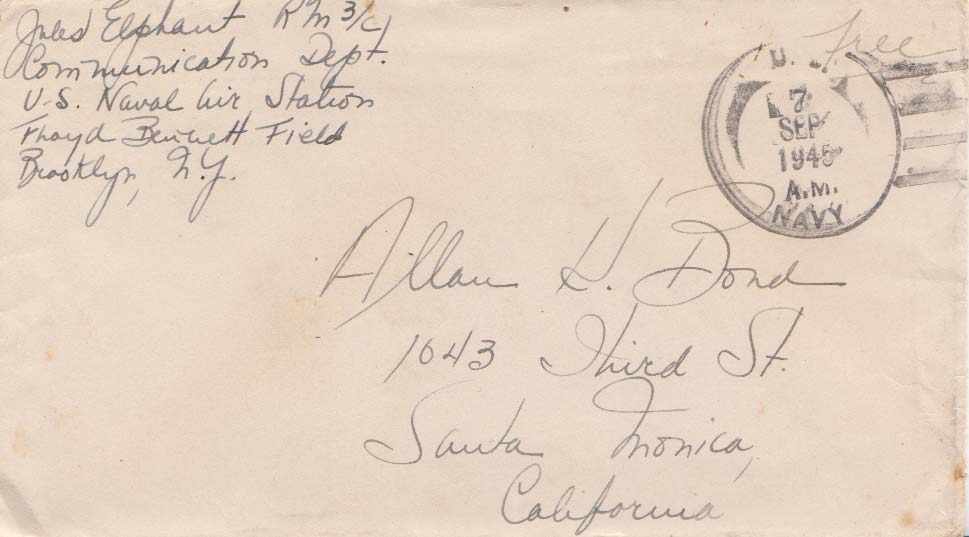 Jules Elphant RM 3/c
Communication Dept.
U.S. Naval Air Station
Floyd Bennett Field
Brooklyn, N.Y.
Free
U. S.
7
SEP
1945
A.M.
NAVY
Allan H. Bond
1043 Third St.
Santa Monica,
California